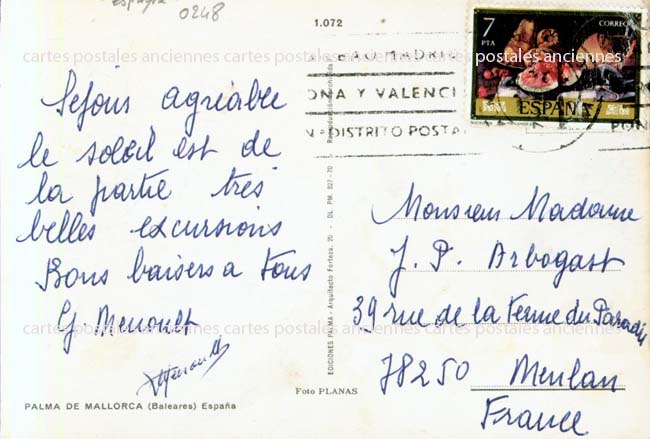 España
0248
1.072
7
PTA
CORREOS
ESPAÑA
MADRID
ONA Y VALENCI
DISTRITO POSTAL
PON
cartes postales anciennes cartes postales anciennes cartes postales anciennes
Séjour agréable
le soleil est de
la partie très
belles excursions
Bons baisers a tous
G. Menoult
Monsieur Madame
J. P. Arbogast
39 rue de la Ferme du Paradis
78250 Meulan
France
cartes postales anciennes cartes postales anciennes cartes postales anciennes
EDICIONES PALMA - Arquitecto Forteza, 70 - DL. PM. 827-70 - Reproducción prohibida
Foto PLANAS
PALMA DE MALLORCA (Baleares) España